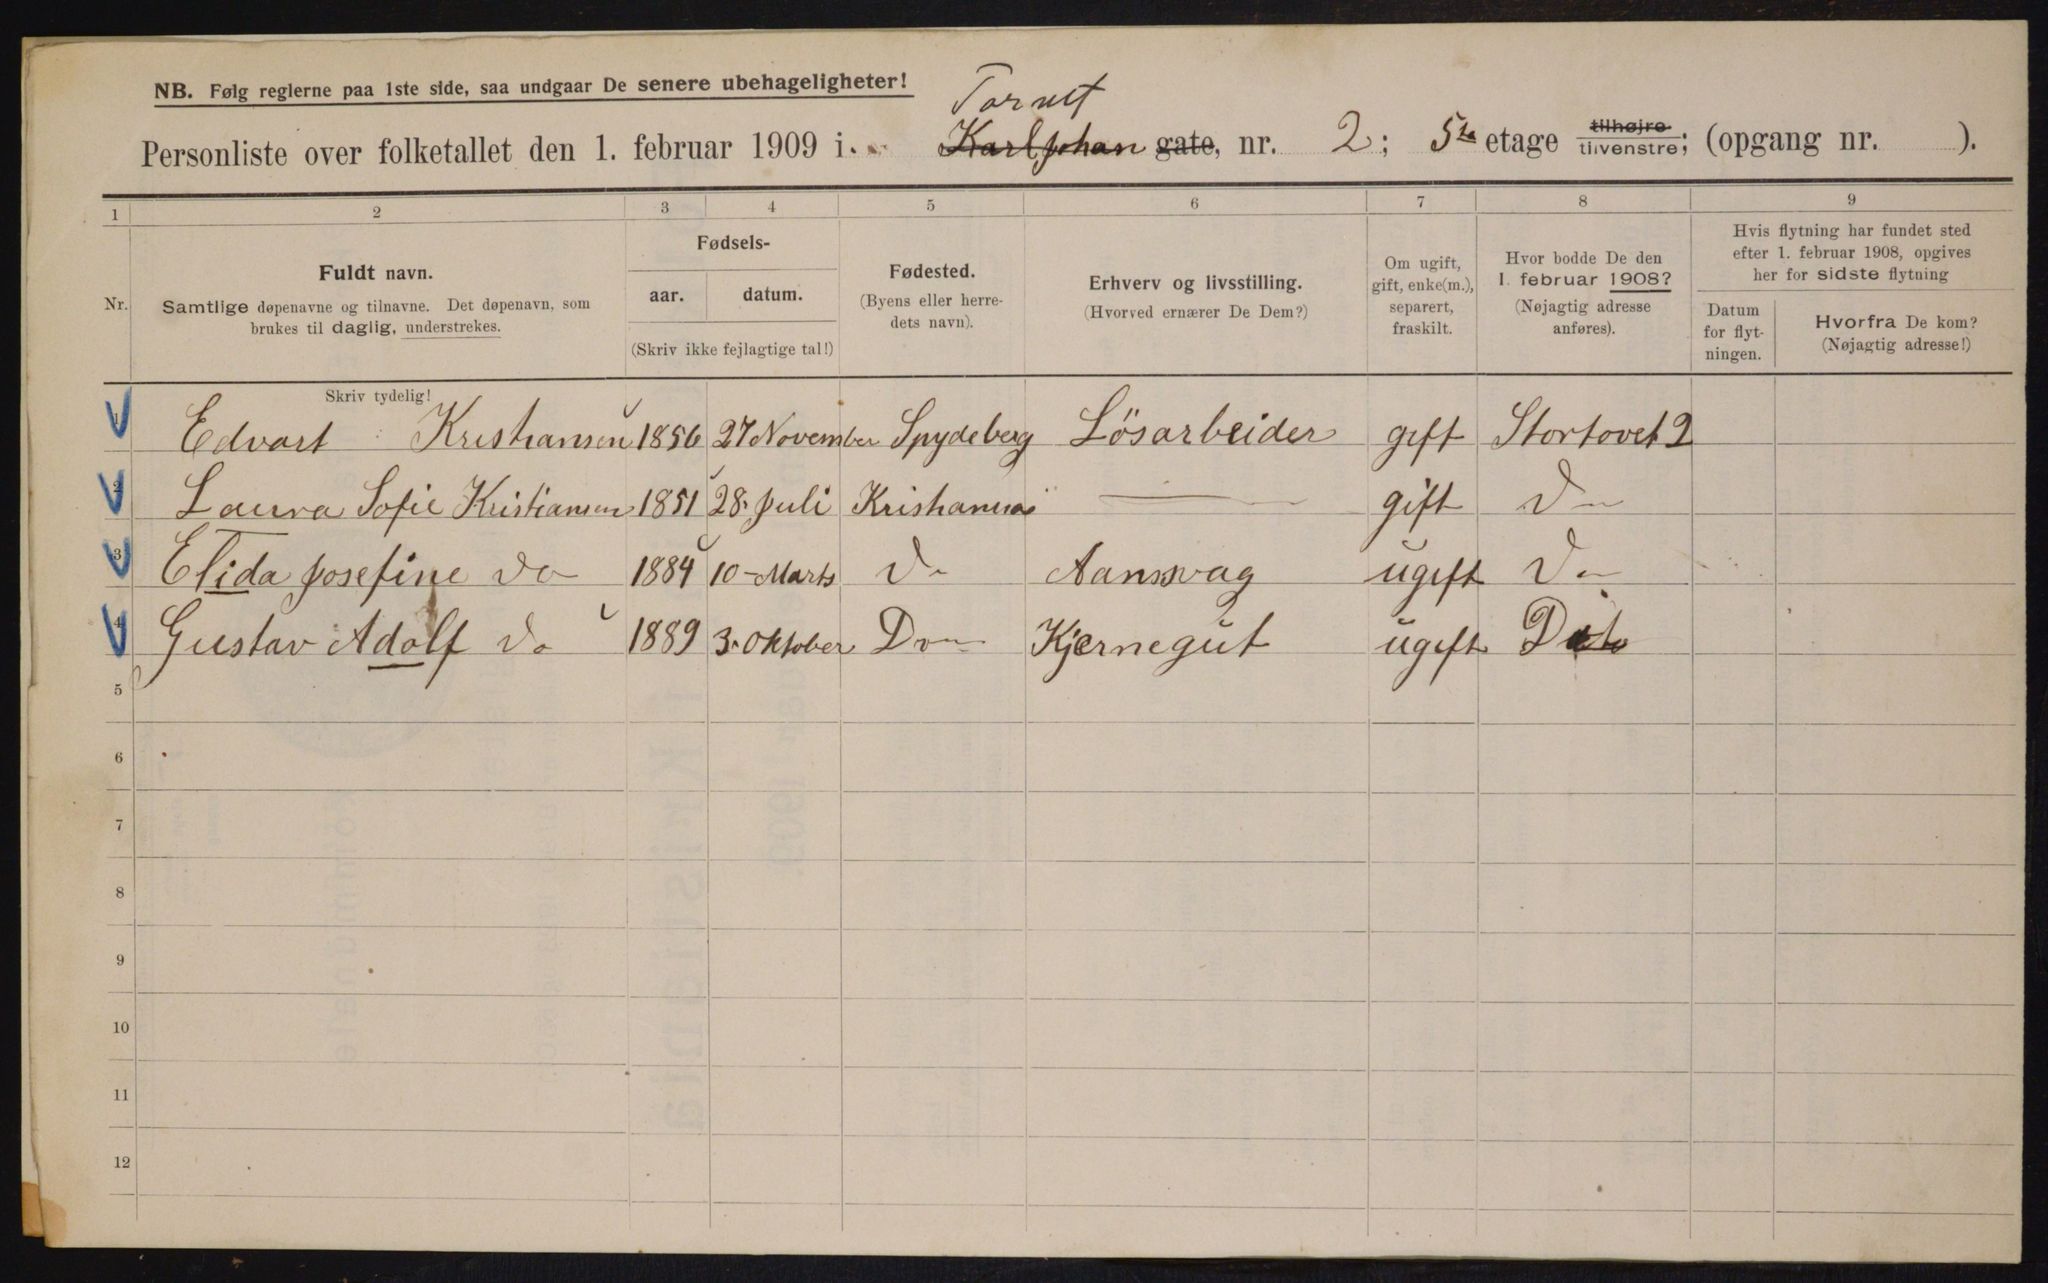 NB. Følg reglerne paa 1ste side, saa undgaar De senere ubehageligheter!
Torvet
Personliste over folketallet den 1. februar 1909 i Karl Johan gate, nr. 2; 5te etage tilhøjre tilvenstre; (opgang nr. ).
1 2 3 4 5 6 7 8 9
Nr.
Fuldt navn.
Samtlige døpenavne og tilnavne. Det døpenavn, som
brukes til daglig, understrekes.
Fødsels-
aar. datum.
(Skriv ikke fejlagtige tal!)
Fødested.
(Byens eller herre-
dets navn).
Erhverv og livsstilling.
(Hvorved ernærer De Dem?)
Om ugift,
gift, enke(m.),
separert,
fraskilt.
Hvor bodde De den
1. februar 1908?
(Nøjagtig adresse
anføres).
Hvis flytning har fundet sted
efter 1. februar 1908, opgives
her for sidste flytning
Datum
for flyt-
ningen.
Hvorfra De kom?
(Nøjagtig adresse!)
Skriv tydelig!
1 Edvart Kristiansen 1856 27 November Spydeberg Lösarbeider gift Stortovet 2
2 Laura Sofie Kristiansen 1851 28. Juli Kristiania — gift Do
3 Elida Josefine Do 1884 10 Marts Do ugift Do
4 Gustav Adolf Do 1889 3. Oktober Do Kjernegut ugift Dito
5
6
7
8
9
10
11
12